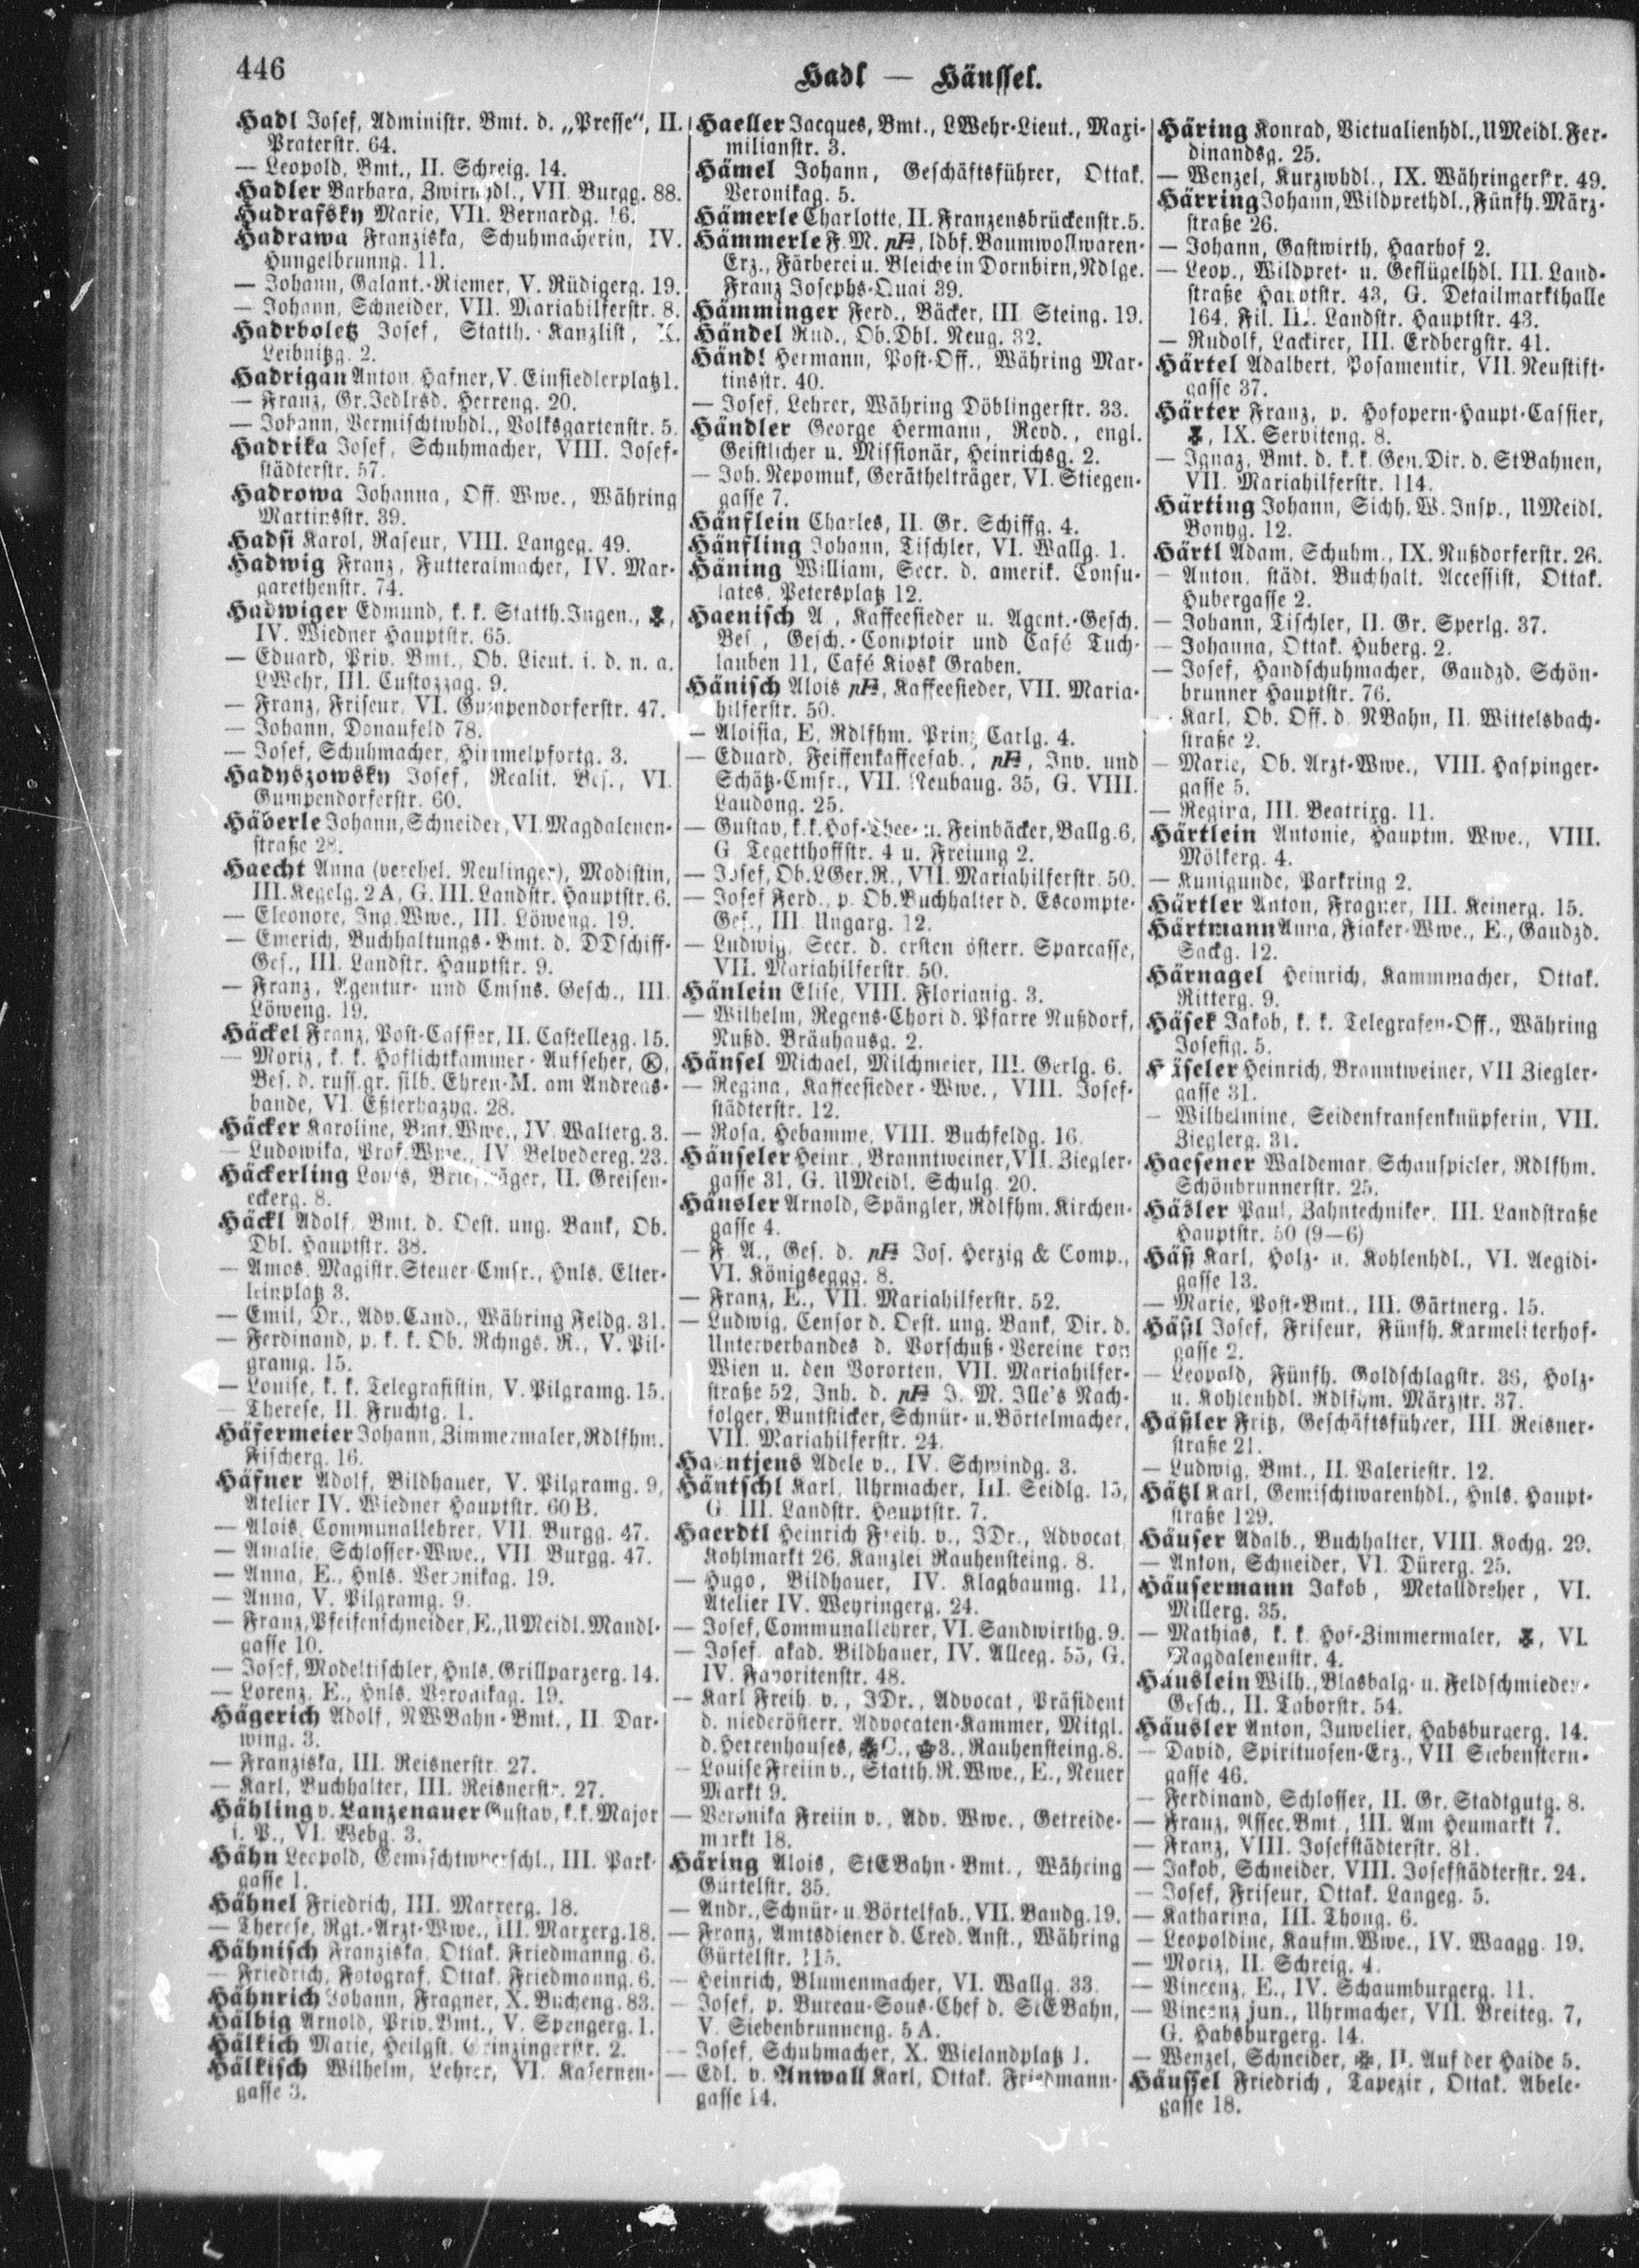 446
Hadl — Häussel.
Hadl Josef, Administr. Bmt. d. „Presse“, II.
Praterstr. 64.
— Leopold, Bmt., II. Schreig. 14.
Hadler Barbara, Zwirnhdl., VII. Burgg. 88.
Hadrafsky Marie, VII. Bernardg. 16.
Hadrawa Franziska, Schuhmacherin, IV.
Hungelbrunng. 11.
— Johann, Galant.-Riemer, V. Rüdigerg. 19.
— Johann, Schneider, VII. Mariahilferstr. 8.
Hadrboletz Josef, Statth.-Kanzlist, X.
Leibnitzg. 2.
Hadrigan Anton, Hafner, V. Einsiedlerplatz 1.
— Franz, Gr. Jedlrsd. Herreng. 20.
— Johann, Vermischtwhdl., Volksgartenstr. 5.
Hadrika Josef, Schuhmacher, VIII. Josef-
städterstr. 57.
Hadrowa Johanna, Off. Wwe., Währing
Martinsstr. 39.
Hadsi Karol, Raseur, VIII. Langeg. 49.
Hadwig Franz, Futteralmacher, IV. Mar-
garethenstr. 74.
Hadwiger Edmund, k. k. Statth. Ingen.,
IV. Wiedner Hauptstr. 65.
— Eduard, Priv. Bmt., Ob. Lieut. i. d. n. a.
LWehr, III. Custozzag. 9.
— Franz, Friseur, VI. Gumpendorferstr. 47.
— Johann, Donaufeld 78.
— Josef, Schuhmacher, Himmelpfortg. 3.
Hadyszowsky Josef, Realit. Bes., VI.
Gumpendorferstr. 60.
Häberle Johann, Schneider, VI. Magdalenen-
straße 28.
Haecht Anna (verehel. Neulinger), Modistin,
III. Kegelg. 2 A, G. III. Landstr. Hauptstr. 6.
— Eleonore, Ing. Wwe., III. Löweng. 19.
— Emerich, Buchhaltungs-Bmt. d. DDschiff-
Ges., III. Landstr. Hauptstr. 9.
— Franz, Agentur- und Cmsns. Gesch., III.
Löweng. 19.
Häckel Franz, Post-Cassier, II. Castellezg. 15.
— Moriz, k. k. Hoflichtkammer-Aufseher, Ⓚ,
Bes. d. russ. gr. silb. Ehren-M. am Andreas-
bande, VI. Eßterhazyg. 28.
Häcker Karoline, Bmt. Wwe., IV. Walterg. 3.
— Ludowika, Prof. Wwe., IV. Belvedereg. 23.
Häckerling Louis, Briefträger, II. Greisen-
eckerg. 8.
Häckl Adolf, Bmt. d. Oest. ung. Bank, Ob.
Dbl. Hauptstr. 38.
— Amos, Magistr. Steuer Cmsr., Hnls. Elter-
leinplatz 3.
— Emil, Dr., Adv. Cand., Währing Feldg. 31.
— Ferdinand, p. k. k. Ob. Rchngs. R., V. Pil-
gramg. 15.
— Louise, k. k. Telegrafistin, V. Pilgramg. 15.
— Therese, II. Fruchtg. 1.
Häfermeier Johann, Zimmermaler, Rdlfhm.
Fischerg. 16.
Häfner Adolf, Bildhauer, V. Pilgramg. 9,
Atelier IV. Wiedner Hauptstr. 60 B.
— Alois, Communallehrer, VII. Burgg. 47.
— Amalie, Schlosser-Wwe., VII. Burgg. 47.
— Anna, E., Hnls. Veronikag. 19.
— Anna, V. Pilgramg. 9.
— Franz, Pfeifenschneider, E., UMeidl. Mandl-
gasse 10.
— Josef, Modeltischler, Hnls. Grillparzerg. 14.
— Lorenz, E., Hnls. Veronikag. 19.
Hägerich Adolf, NWBahn-Bmt., II. Dar-
wing. 3.
— Franziska, III. Reisnerstr. 27.
— Karl, Buchhalter, III. Reisnerstr. 27.
Hähling v. Lanzenauer Gustav, k. k. Major
i. P., VI. Webg. 3.
Hähn Leopold, Gemischtwverschl., III. Park-
gasse 1.
Hähnel Friedrich, III. Marxerg. 18.
— Therese, Rgt.-Arzt-Wwe., III. Marxerg. 18.
Hähnisch Franziska, Ottak. Friedmanng. 6.
— Friedrich, Fotograf, Ottak. Friedmanng. 6.
Hähnrich Johann, Fragner, X. Bucheng. 83.
Hälbig Arnold, Priv. Bmt., V. Spengerg. 1.
Hälkich Marie, Heilgst. Grinzingerstr. 2.
Hälkisch Wilhelm, Lehrer, VI. Kasernen-
gasse 3.
Haeller Jacques, Bmt., LWehr-Lieut., Maxi-
milianstr. 3.
Hämel Johann, Geschäftsführer, Ottak.
Veronikag. 5.
Hämerle Charlotte, II. Franzensbrückenstr. 5.
Hämmerle F. M. ldbf. Baumwollwaren-
Erz., Färberei u. Bleiche in Dornbirn, Ndlge.
Franz Josephs-Quai 39.
Hämminger Ferd., Bäcker, III. Steing. 19.
Händel Rud., Ob. Dbl. Neug. 32.
Händl Hermann, Post-Off., Währing Mar-
tinsstr. 40.
— Josef, Lehrer, Währing Döblingerstr. 33.
Händler George Hermann, Revd., engl.
Geistlicher u. Missionär, Heinrichsg. 2.
— Joh. Nepomuk, Geräthelträger, VI. Stiegen-
gasse 7.
Hänflein Charles, II. Gr. Schiffg. 4.
Hänfling Johann, Tischler, VI. Wallg. 1.
Häning William, Secr. d. amerik. Consu-
lates, Petersplatz 12.
Haenisch A., Kaffeesieder u. Agent.-Gesch.
Bes., Gesch.-Comptoir und Café Tuch-
lauben 11, Café Kiosk Graben.
Hänisch Alois Kaffeesieder, VII. Maria-
hilferstr. 50.
— Aloisia, E., Rdlfhm. Prinz Carlg. 4.
— Eduard, Feiffenkaffeefab., Inv. und
Schätz-Cmsr., VII. Neubaug. 35, G. VIII.
Laudong. 25.
— Gustav, k. k. Hof-Thee- u. Feinbäcker, Ballg. 6,
G. Tegetthoffstr. 4 u. Freiung 2.
— Josef, Ob. LGer. R., VII. Mariahilferstr. 50.
— Josef Ferd., p. Ob. Buchhalter d. Escompte-
Ges., III. Ungarg. 12.
— Ludwig, Secr. d. ersten österr. Sparcasse,
VII. Mariahilferstr. 50.
Hänlein Elise, VIII. Florianig. 3.
— Wilhelm, Regens-Chori d. Pfarre Nußdorf,
Nußd. Bräuhausg. 2.
Hänsel Michael, Milchmeier, III. Gerlg. 6.
— Regina, Kaffeesieder-Wwe., VIII. Josef-
städterstr. 12.
— Rosa, Hebamme, VIII. Buchfeldg. 16.
Hänseler Heinr., Branntweiner, VII. Ziegler-
gasse 31, G. UMeidl. Schulg. 20.
Hänsler Arnold, Spängler, Rdlfhm. Kirchen-
gasse 4.
— F. A., Ges. d. Jos. Herzig & Comp.,
VI. Königsegg. 8.
— Franz, E., VII. Mariahilferstr. 52.
— Ludwig, Censor d. Oest. ung. Bank, Dir. d.
Unterverbandes d. Vorschuß-Vereine von
Wien u. den Vororten, VII. Mariahilfer-
straße 52, Inh. d. J. M. Ille's Nach-
folger, Buntsticker, Schnür- u. Börtelmacher,
VII. Mariahilferstr. 24.
Haentjens Adele v., IV. Schwindg. 3.
Häntschl Karl, Uhrmacher, III. Seidlg. 15,
G. III. Landstr. Hauptstr. 7.
Haerdtl Heinrich Freih. v., JDr., Advocat,
Kohlmarkt 26, Kanzlei Rauhensteing. 8.
— Hugo, Bildhauer, IV. Klagbaumg. 11,
Atelier IV. Weyringerg. 24.
— Josef, Communallehrer, VI. Sandwirthg. 9.
— Josef, akad. Bildhauer, IV. Alleeg. 55, G.
IV. Favoritenstr. 48.
— Karl Freih. v., JDr., Advocat, Präsident
d. niederösterr. Advocaten-Kammer, Mitgl.
d. Herrenhauses, C., 3., Rauhensteing. 8.
— Louise Freiin v., Statth. R. Wwe., E., Neuer
Markt 9.
— Veronika Freiin v., Adv. Wwe., Getreide-
markt 18.
Häring Alois, StEBahn-Bmt., Währing
Gürtelstr. 35.
— Andr., Schnür- u. Börtelfab., VII. Bandg. 19.
— Franz, Amtsdiener d. Cred. Anst., Währing
Gürtelstr. 115.
— Heinrich, Blumenmacher, VI. Wallg. 33.
— Josef, p. Bureau-Sous-Chef d. StEBahn,
V. Siebenbrunneng. 5 A.
— Josef, Schuhmacher, X. Wielandplatz 1.
— Edl. v. Anwall Karl, Ottak. Friedmann-
gasse 14.
Häring Konrad, Victualienhdl., UMeidl. Fer-
dinandsg. 25.
— Wenzel, Kurzwhdl., IX. Währingerstr. 49.
Härring Johann, Wildprethdl., Fünfh. März-
straße 26.
— Johann, Gastwirth, Haarhof 2.
— Leop., Wildpret- u. Geflügelhdl. III. Land-
straße Hauptstr. 43, G. Detailmarkthalle
164, Fil. III. Landstr. Hauptstr. 43.
— Rudolf, Lackirer, III. Erdbergstr. 41.
Härtel Adalbert, Posamentir, VII. Neustift-
gasse 37.
Härter Franz, p. Hofopern-Haupt-Cassier,
IX. Serviteng. 8.
— Ignaz, Bmt. d. k. k. Gen. Dir. d. StBahnen,
VII. Mariahilferstr. 114.
Härting Johann, Sichh. W. Insp., UMeidl.
Bonyg. 12.
Härtl Adam, Schuhm., IX. Nußdorferstr. 26.
— Anton, städt. Buchhalt. Accessist, Ottak.
Hubergasse 2.
— Johann, Tischler, II. Gr. Sperlg. 37.
— Johanna, Ottak. Huberg. 2.
— Josef, Handschuhmacher, Gaudzd. Schön-
brunner Hauptstr. 76.
— Karl, Ob. Off. d. NBahn, II. Wittelsbach-
straße 2.
— Marie, Ob. Arzt-Wwe., VIII. Haspinger-
gasse 5.
— Regina, III. Beatrixg. 11.
Härtlein Antonie, Hauptm. Wwe., VIII.
Mölkerg. 4.
— Kunigunde, Parkring 2.
Härtler Anton, Fragner, III. Keinerg. 15.
Härtmann Anna, Fiaker-Wwe., E., Gaudzd.
Sackg. 12.
Härnagel Heinrich, Kammmacher, Ottak.
Ritterg. 9.
Häsek Jakob, k. k. Telegrafen-Off., Währing
Josefig. 5.
Häseler Heinrich, Branntweiner, VII Ziegler-
gasse 31.
— Wilhelmine, Seidenfransenknüpferin, VII.
Zieglerg. 31.
Haesener Waldemar, Schauspieler, Rdlfhm.
Schönbrunnerstr. 25.
Häsler Paul, Zahntechniker, III. Landstraße
Hauptstr. 50 (9—6)
Häß Karl, Holz- u. Kohlenhdl., VI. Aegidi-
gasse 13.
— Marie, Post-Bmt., III. Gärtnerg. 15.
Häßl Josef, Friseur, Fünfh. Karmeliterhof-
gasse 2.
— Leopold, Fünfh. Goldschlagstr. 36, Holz-
u. Kohlenhdl. Rdlfhm. Märzstr. 37.
Häßler Fritz, Geschäftsführer, III. Reisner-
straße 21.
— Ludwig, Bmt., II. Valeriestr. 12.
Hätzl Karl, Gemischtwarenhdl., Hnls. Haupt-
straße 129.
Häuser Adalb., Buchhalter, VIII. Kochg. 29.
— Anton, Schneider, VI. Dürerg. 25.
Häusermann Jakob, Metalldreher, VI.
Millerg. 35.
— Mathias, k. k. Hof-Zimmermaler, VI.
Magdalenenstr. 4.
Häuslein Wilh., Blasbalg- u. Feldschmieden-
Gesch., II. Taborstr. 54.
Häusler Anton, Juwelier, Habsburgerg. 14.
— David, Spirituosen-Erz., VII. Siebenstern-
gasse 46.
— Ferdinand, Schlosser, II. Gr. Stadtgutg. 8.
— Franz, Assec. Bmt., III. Am Heumarkt 7.
— Franz, VIII. Josefstädterstr. 81.
— Jakob, Schneider, VIII. Josefstädterstr. 24.
— Josef, Friseur, Ottak. Langeg. 5.
— Katharina, III. Thong. 6.
— Leopoldine, Kaufm. Wwe., IV. Waagg. 19.
— Moriz, II. Schreig. 4.
— Vincenz, E., IV. Schaumburgerg. 11.
— Vincenz jun., Uhrmacher, VII. Breiteg. 7,
G. Habsburgerg. 14.
— Wenzel, Schneider, II. Auf der Haide 5.
Häussel Friedrich, Tapezir, Ottak. Abele-
gasse 18.